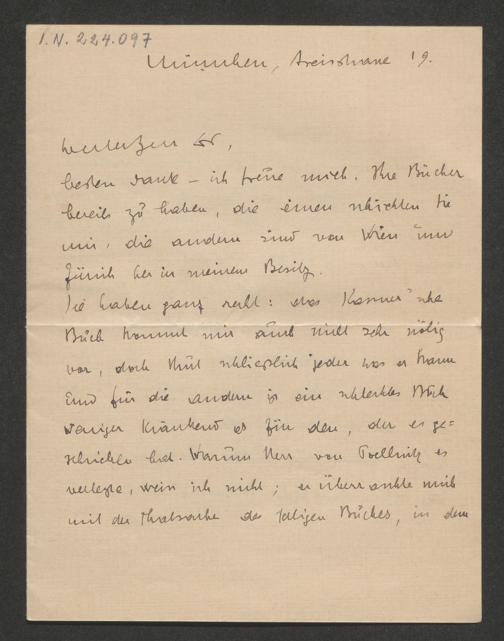 I.N. 224.097
München, Arcisstrasse 19.
Verehrter Dr,
besten Dank – ich freue mich. Ihre Bücher
bereits zu haben, die einen schickten Sie
mir, die andern sind von Wien und
Zürich her in meinem Besitz.
Sie haben ganz recht: das "sche
Buch kommt mir auch nicht sehr nötig
vor, doch thut schliesslich jeder was er kann
und für die andern ist ein schlechtes Buch
weniger kränkend als für den, der es ge=
schrieben hat. Warum Herr von es
verlegte, weiss ich nicht; er überraschte mich
mit der Thatsache des Buches, in dem